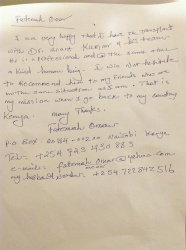 Fatomah Omar
I am very happy that I have a transplant
with Dr. Anant Kumar & his team.
He is a professional and @ the same time
a kind human being. I wish
to recommend him to my friends who are
in the same situation as I am. That is
my mission when I go back to my country
Kenya. Many Thanks.
Fatomah Omar
P.O Box Nairobi Kenya
Tel: +254
e-mail: @yahoo.com
my husband Number: +254